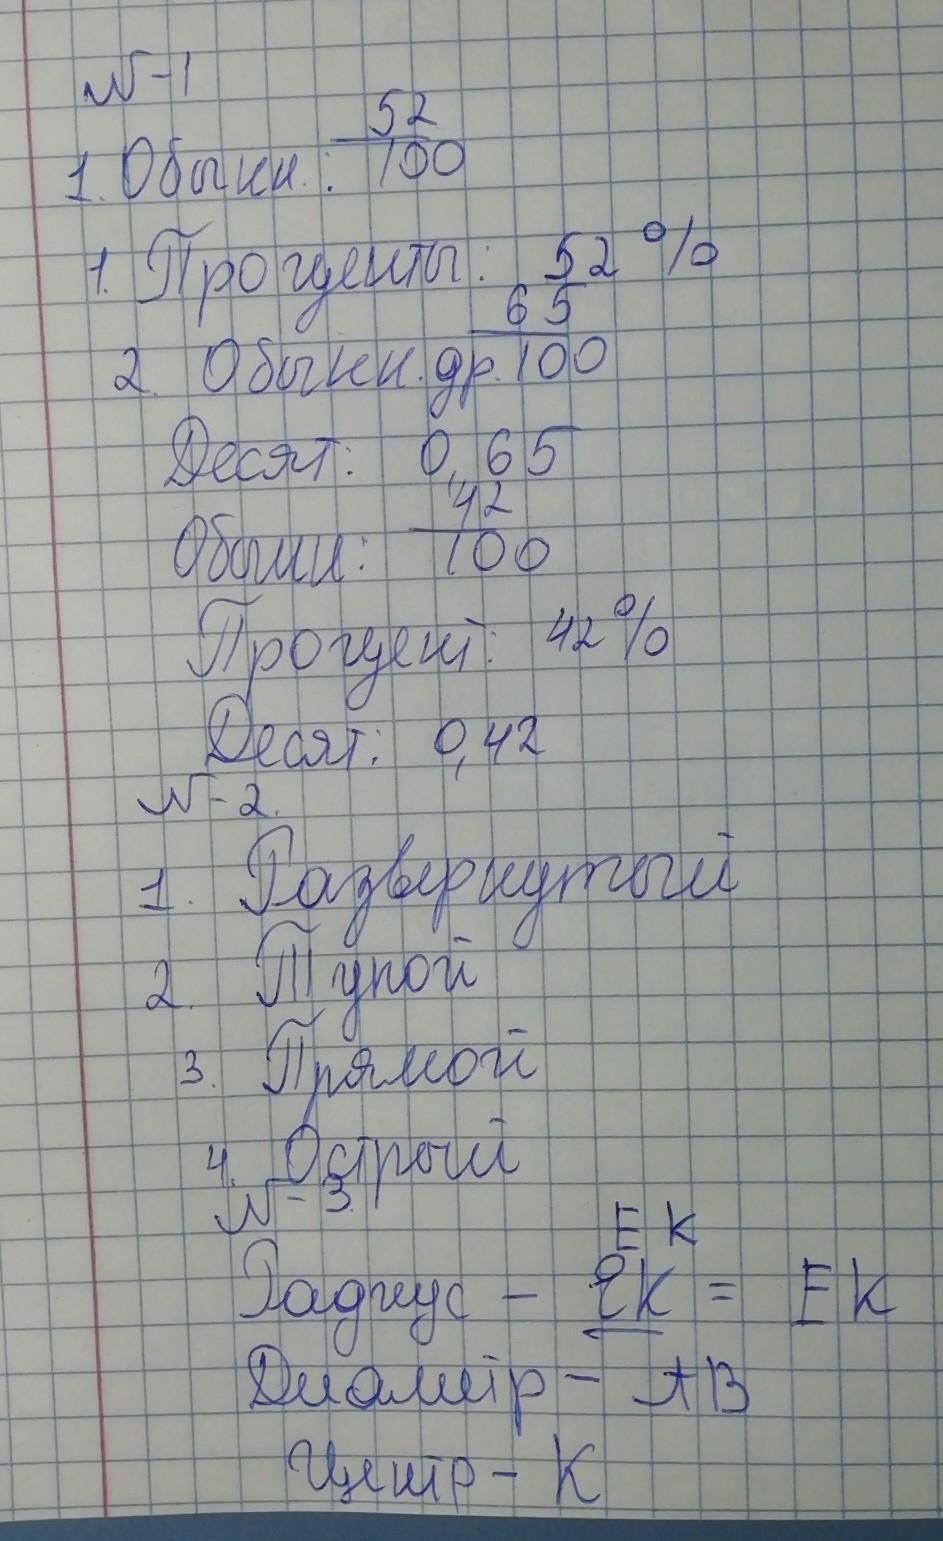 N-1
1. Обыкн.: 52/100
1. Проценты: 52%
2. Обыкн. др. 65/100
Десят: 0,65
Обыкн: 42/100
Процент: 42%
Десят: 0,42
N-2.
1. Развернутый
2. Тупой
3. Прямой
4. Острый
N-3.
E K
Радиус - EK = EK
Диаметр - AB
Центр - K